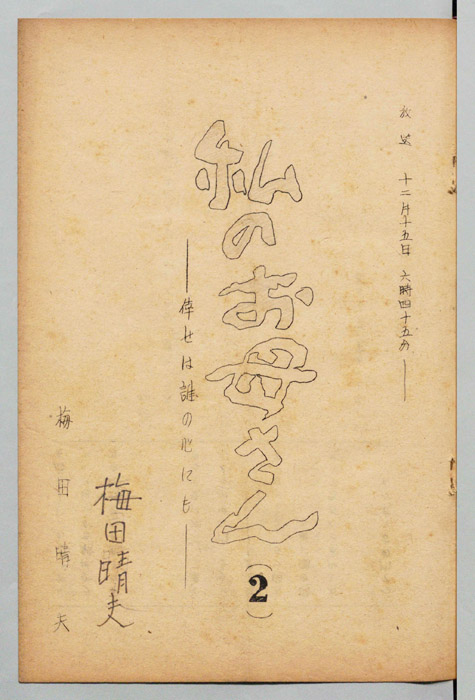 放送 十二月十五日 六時四十五分——
私のお母さん
(2)
——倖せは誰の心にも——
梅田晴夫
梅田晴夫